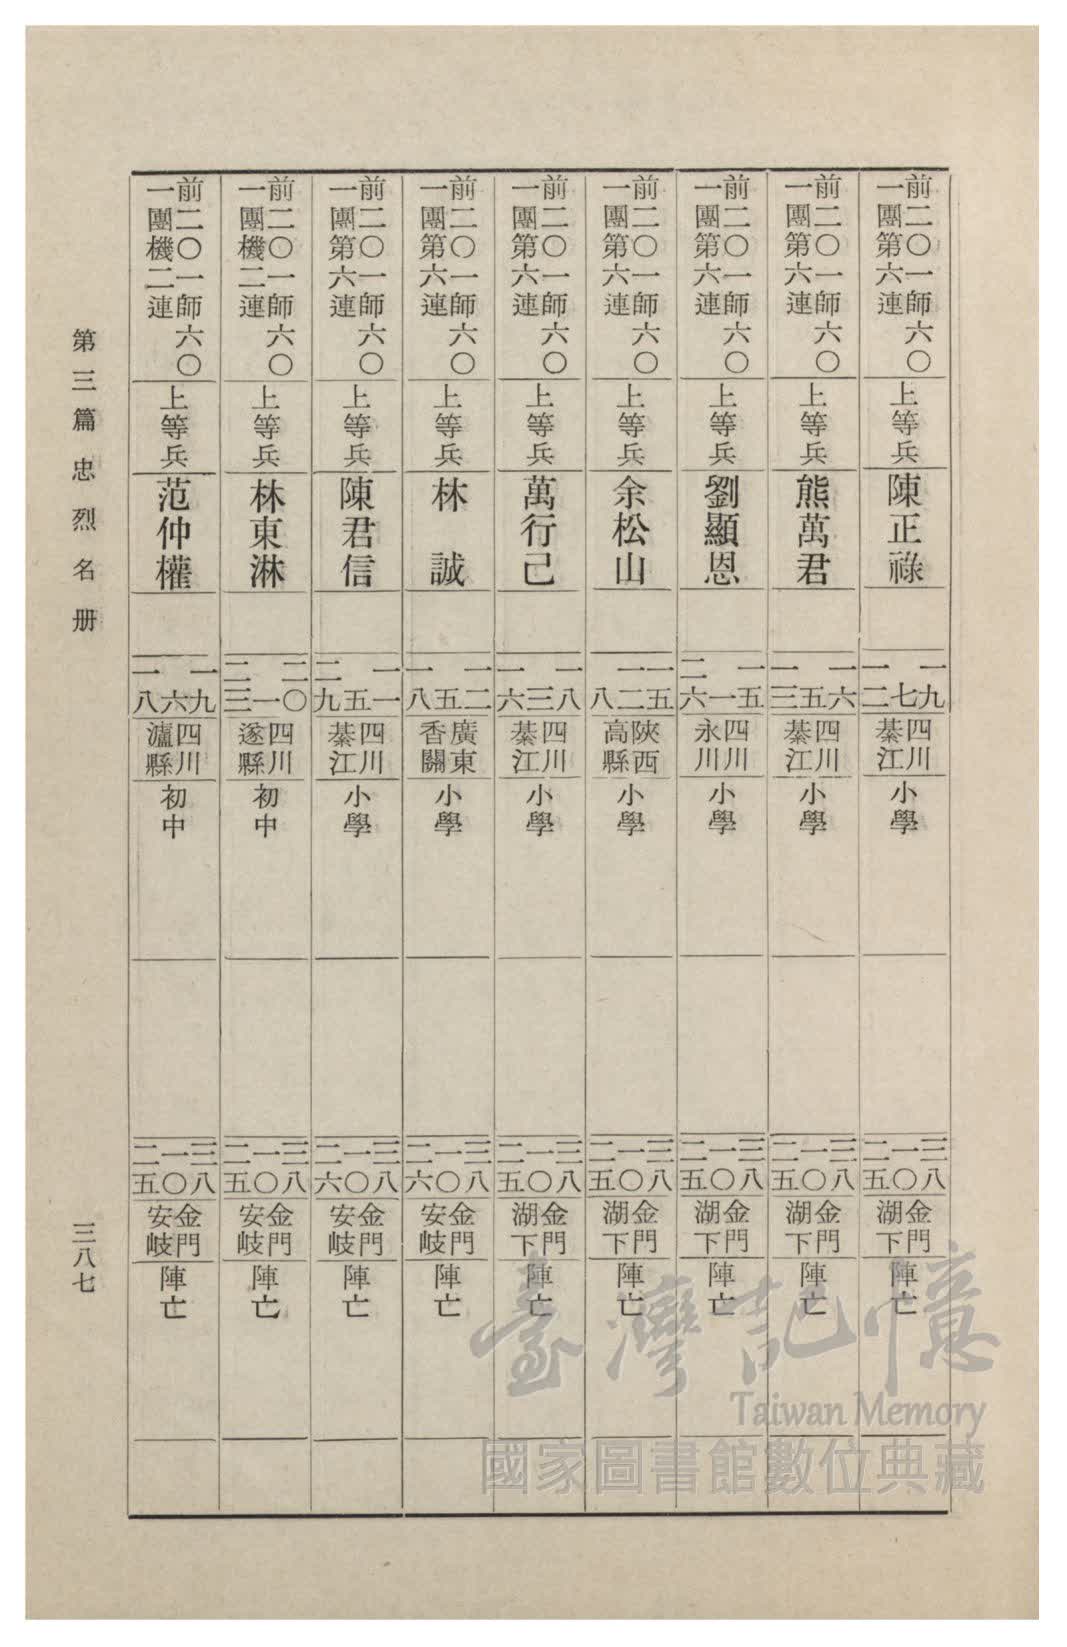 前二〇一師六〇
一團第六連
上等兵
陳正祿
一九
七
一二
四川
綦江
小學
三八
一〇
二五
金門
湖下
陣亡
前二〇一師六〇
一團第六連
上等兵
熊萬君
一六
五
一三
四川
綦江
小學
三八
一〇
二五
金門
湖下
陣亡
前二〇一師六〇
一團第六連
上等兵
劉顯恩
一五
一
二六
四川
永川
小學
三八
一〇
二五
金門
湖下
陣亡
前二〇一師六〇
一團第六連
上等兵
余松山
一五
一二
八
陝西
高縣
小學
三八
一〇
二五
金門
湖下
陣亡
前二〇一師六〇
一團第六連
上等兵
萬行己
一八
三
一六
四川
綦江
小學
三八
一〇
二五
金門
湖下
陣亡
前二〇一師六〇
一團第六連
上等兵
林　誠
一二
五
一八
廣東
香關
小學
三八
一〇
二六
金門
安岐
陣亡
前二〇一師六〇
一團第六連
上等兵
陳君信
一一
五
二九
四川
綦江
小學
三八
一〇
二六
金門
安岐
陣亡
前二〇一師六〇
一團機二連
上等兵
林東淋
二〇
一
二三
四川
遂縣
初中
三八
一〇
二五
金門
安岐
陣亡
前二〇一師六〇
一團機二連
上等兵
范仲權
一九
六
一八
四川
瀘縣
初中
三八
一〇
二五
金門
安岐
陣亡
第三篇 忠烈名册
三八七
臺灣記憶
Taiwan Memory
國家圖書館數位典藏